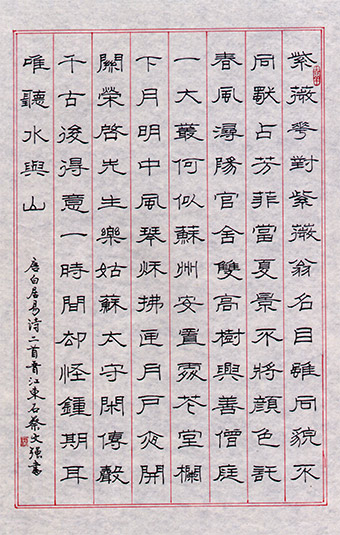 紫薇華對紫薇翁名目雖同貌不
同獨占芳菲當夏景不將顏色託
春風潯陽官舍雙高樹興善僧庭
一大叢何似蘇州安置處花堂欄
下月明中風琴秋拂匣月戶夜開
關榮啓先生樂姑蘇太守閑傳聲
千古後得意一時間却怪鍾期耳
唯聽水與山
唐白居易詩二首晉江東石蔡文強書